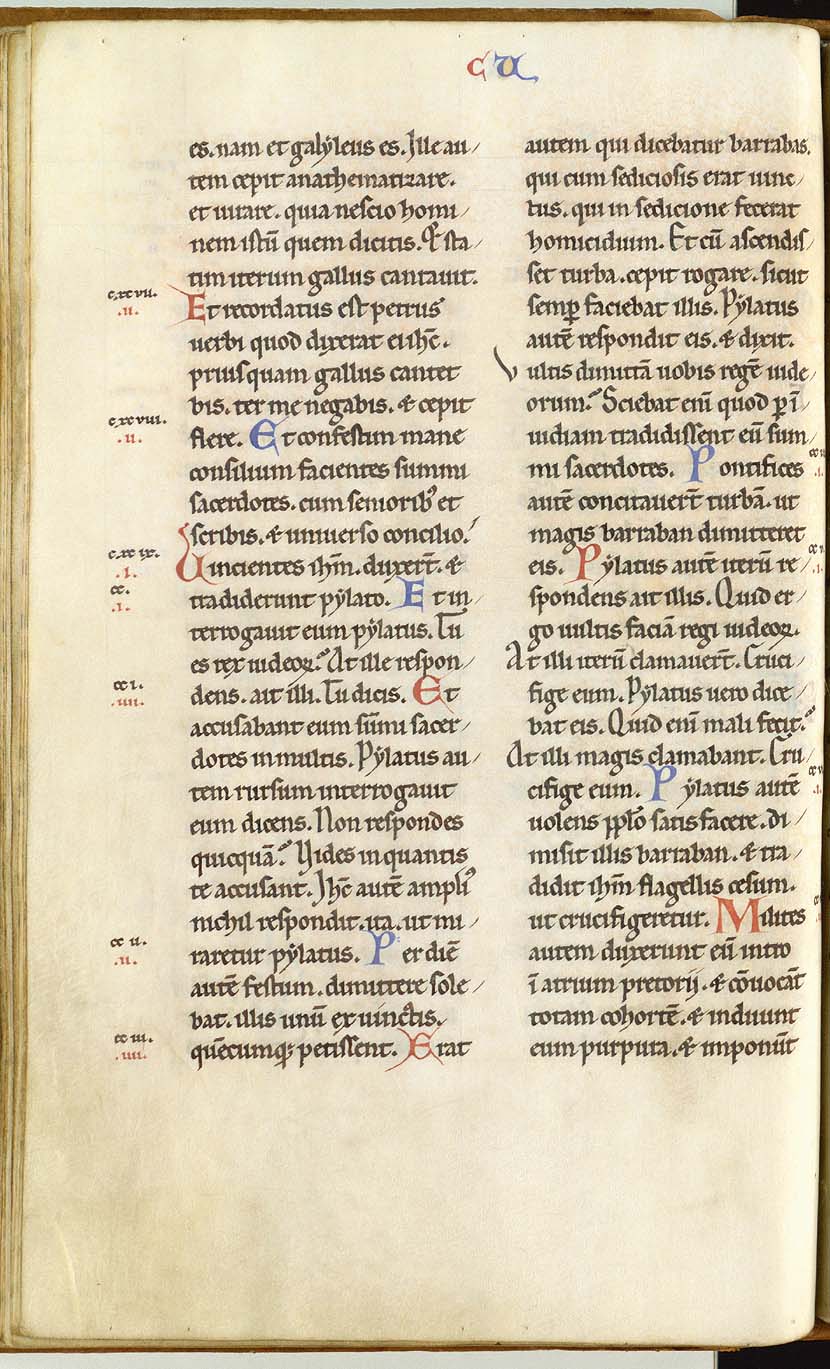 CU
es. nam et galyleus es. Ille au/
tem cepit anathematizare.
et iurare. quia nescio homi/
nem istū quem dicitis. Et sta/
tim iterum gallus cantauit.
c.xc vii.
.ii.
Et recordatus est petrus
uerbi quod dixerat ei ihc̄.
priusquam gallus cantet
bis. ter me negabis. & cepit
c.xc viii.
.ii.
flere. Et confestim mane
consilium facientes summi
sacerdotes. cum seniorib; et
scribis. & uniuerso concilio.
c.xc ix.
.i.
Uincientes ihm̄. duxert̄. &
cc.
.i.
tradiderunt pylato. Et in/
terrogauit eum pylatus. Tu
es rex iudeoꝝ? At ille respon/
cc i.
.iiii.
dens. ait illi. Tu dicis. Et
accusabant eum sūmi sacer/
dotes in multis. Pylatus au/
tem rursum interrogauit
eum dicens. Non respondes
quicquā? Uides in quantis
te accusant. Ihc̄ autē ampli'
nichil respondit. ita. ut mi/
cc ii.
.ii.
raretur pylatus. Per diē
autē festum. dimittere sole/
bat. illis unū ex uinctis.
cc iii.
.iiii.
quēcumq; petissent. Erat
autem qui dicebatur barrabas.
qui cum sediciosis erat uinc/
tus. qui in sedicione fecerat
homicidium. Et cū ascendis/
set turba. cepit rogare. sicut
semꝑ faciebat illis. Pylatus
autē respondit eis. & dixit.
Vultis dimittā uobis regē iude/
orum? Sciebat enī quod ꝑ ī/
uidiam tradidissent eū sum/
mi sacerdotes. Pontifices
autē concitauert̄ turbā. ut
magis barraban dimitteret
eis. Pylatus autē iterū re/
spondens ait illis. Quid er/
go uultis faciā regi iudeoꝝ.
At illi iterū clamauert̄. Cruci/
fige eum. Pylatus uero dice/
bat eis. Quid enī mali fecit?
At illi magis clamabant. Cru/
cifige eum. Pylatus autē
uolens pplo̅ satisfacere. di/
misit illis barraban. & tra/
didit ihm̄ flagellis cesum.
ut crucifigeretur. Milites
autem duxerunt eū intro
ī atrium pretorij. & cōuocāt
totam cohortē. & induunt
eum purpura. & imponūt